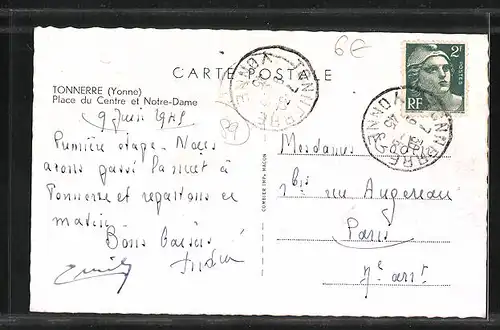 6€
CARTE POSTALE
TONNERRE (Yonne)
Place du Centre et Notre-Dame
9 Juin 1945
Première étape. Nous
avons passé la nuit à
Tonnerre et repartons ce
matin
Bons baisers
COMBIER IMP. MACON
TONNERRE
YONNE
2F
RF
POSTES
TONNERRE
YONNE
Mesdames
rue Augereau
Paris
7e arrt
89